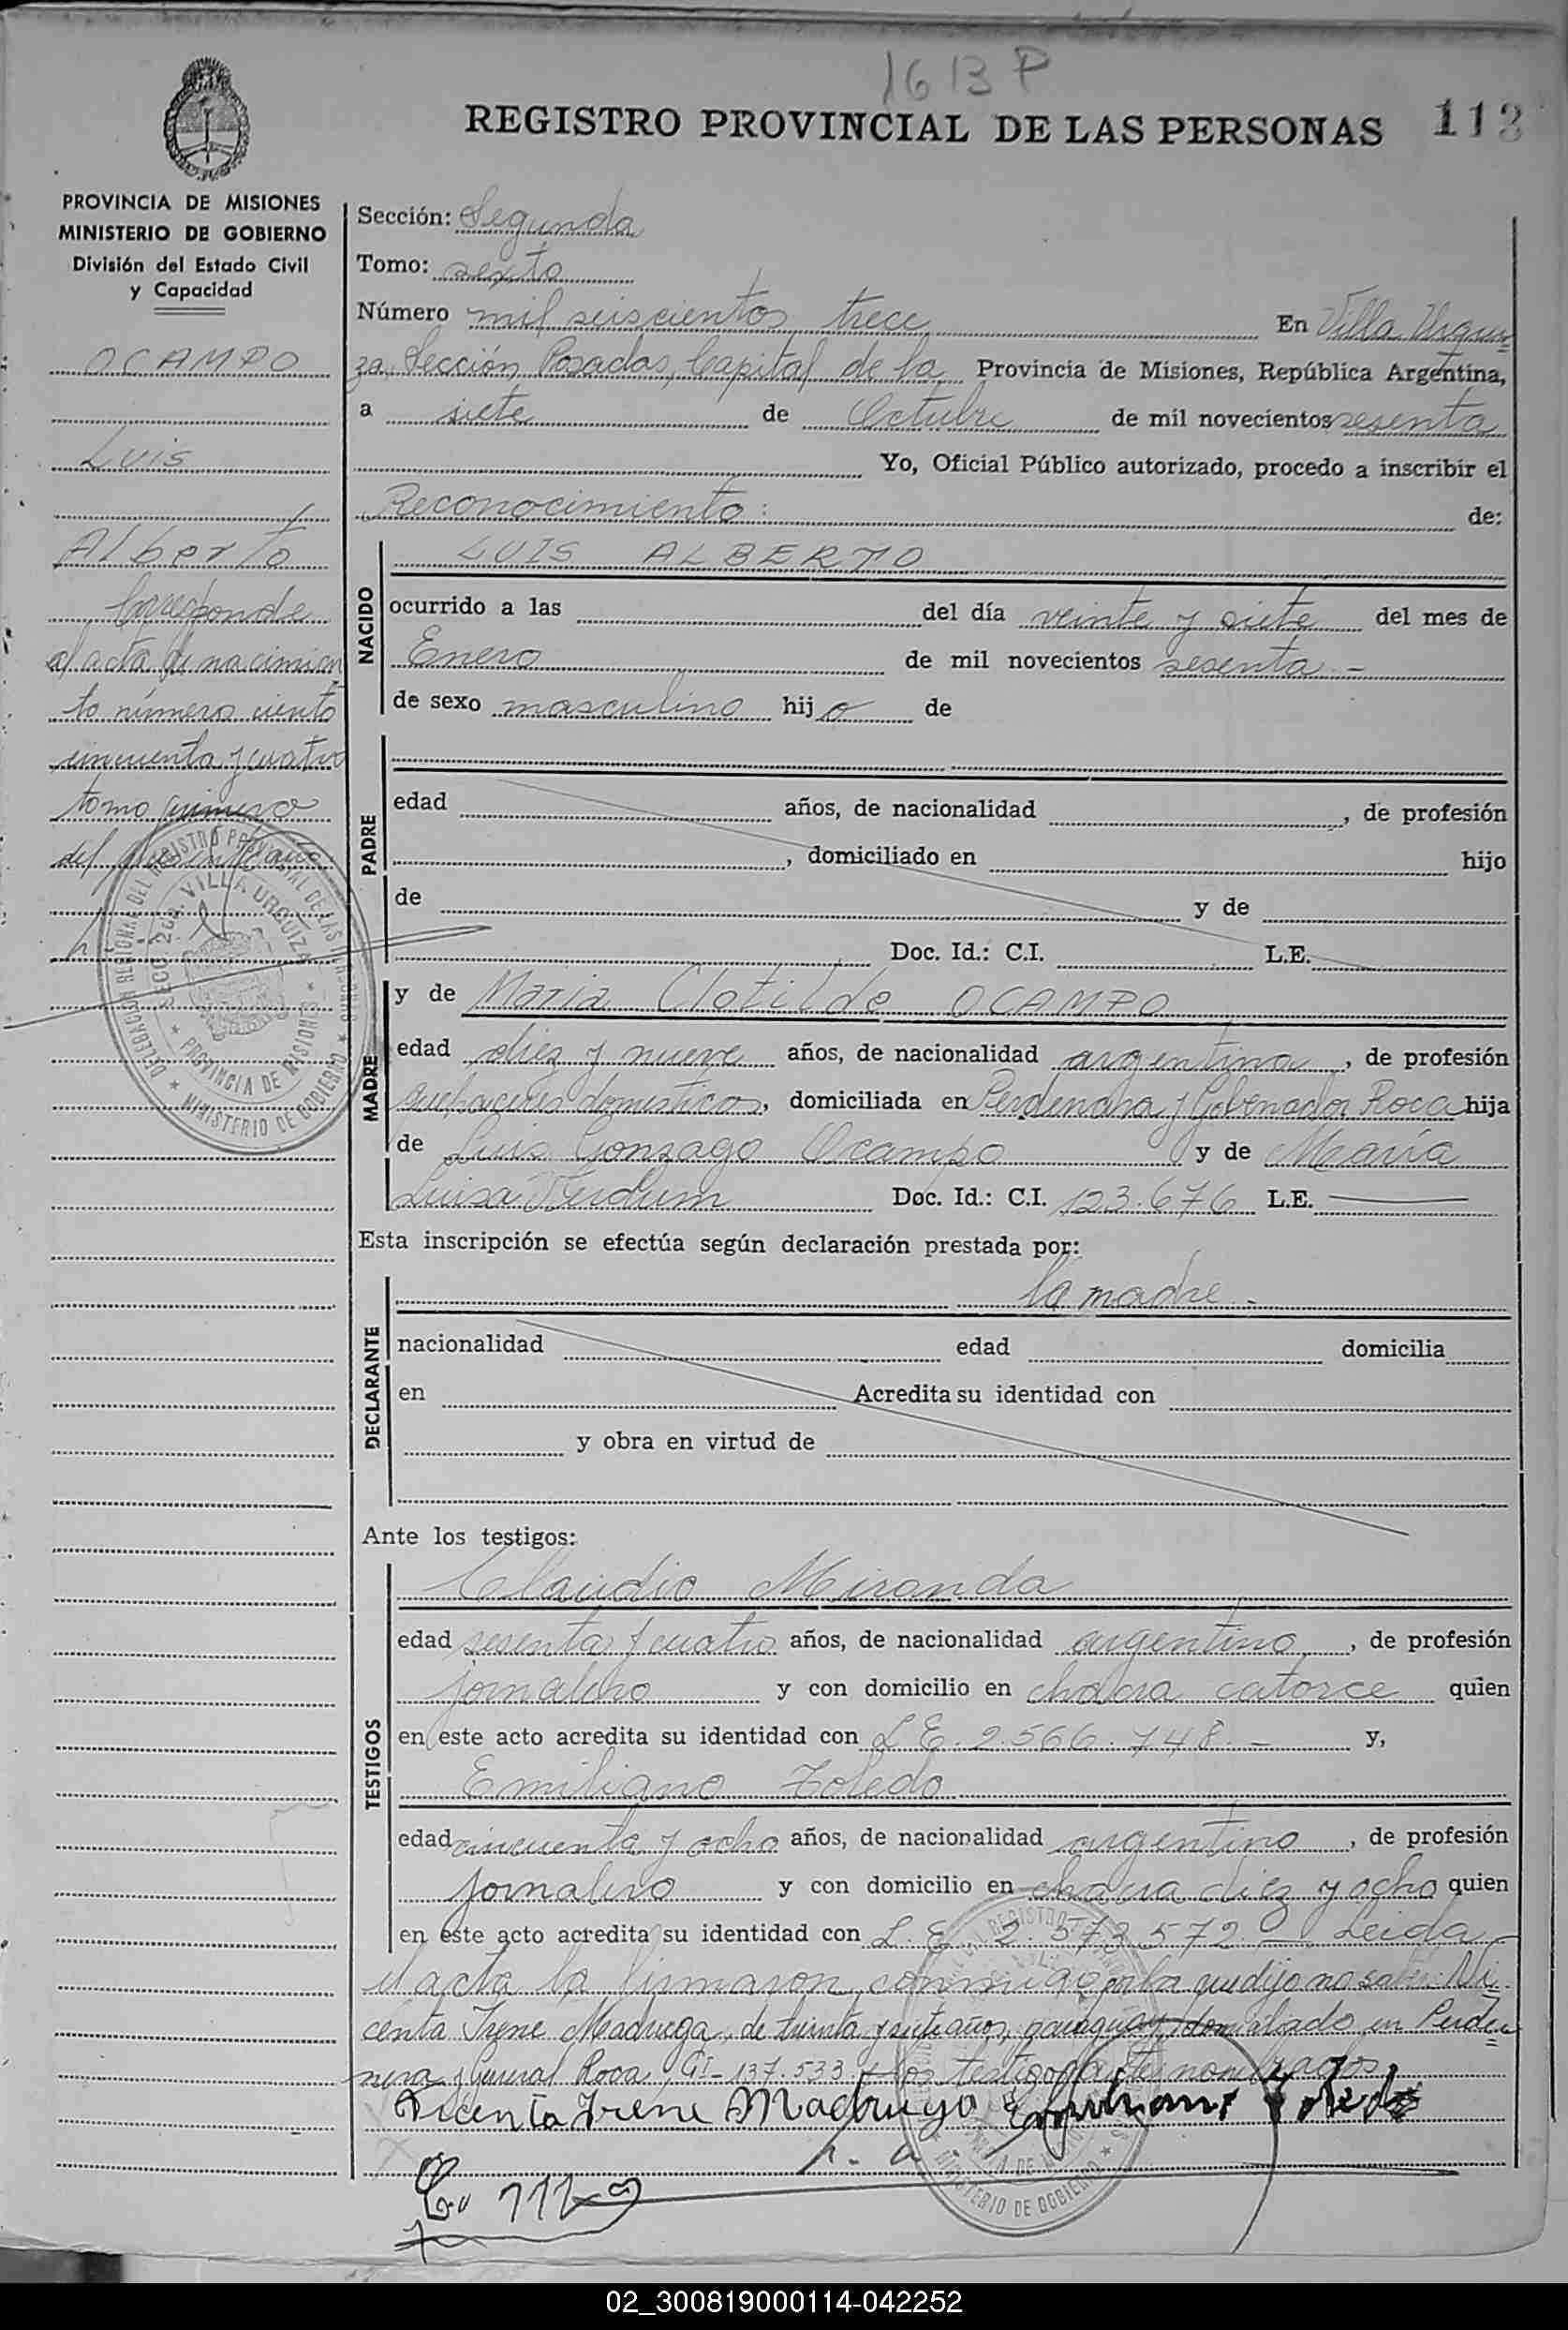 1613 P
REGISTRO PROVINCIAL DE LAS PERSONAS 113
PROVINCIA DE MISIONES
MINISTERIO DE GOBIERNO
División del Estado Civil
y Capacidad
OCAMPO
Luis
Alberto
Corresponde
al acta de nacimien
to número ciento
cincuenta y cuatro
tomo primero
del presente año
Sección: Segunda
Tomo: sexto
Número mil seiscientos trece En Villa Urqui
za, Sección Posadas, Capital de la Provincia de Misiones, República Argentina,
a siete de Octubre de mil novecientos sesenta
Yo, Oficial Público autorizado, procedo a inscribir el
Reconocimiento: de:
NACIDO
LUIS ALBERTO
ocurrido a las del día veinte y siete del mes de
Enero de mil novecientos sesenta.-
de sexo masculino hijo de
PADRE
edad años, de nacionalidad , de profesión
, domiciliado en hijo
de y de
Doc. Id.: C.I. L.E.
MADRE
y de Maria Clotilde OCAMPO
edad diez y nueve años, de nacionalidad argentina, de profesión
quehaceres domésticos, domiciliada en Perdenara y Gobenador Roca hija
de Luis Gonzaga Ocampo y de María
Luisa Ferdum Doc. Id.: C.I. 123.676 L.E.
Esta inscripción se efectúa según declaración prestada por:
DECLARANTE
la madre.-
nacionalidad edad domicilia
en Acredita su identidad con
y obra en virtud de
Ante los testigos:
TESTIGOS
Claudio Miranda
edad sesenta y cuatro años, de nacionalidad argentino, de profesión
jornalero y con domicilio en chacra catorce quien
en este acto acredita su identidad con L.E. 2.566.748.- y,
Emiliano Toledo
edad cincuenta y ocho años, de nacionalidad argentino, de profesión
jornalero y con domicilio en chacra diez y ocho quien
en este acto acredita su identidad con L.E. 2.573.572.- Leida
el acta la firmaron conmigo por la que dijo no saber Vi
centa Irene Madruga, de treinta y siete años, paraguaya, domiciliada en Perder
nera y General Roca, CI-137.533 y los testigos antes nombrados
Vicenta Irene Madruga Emiliano Toledo
DELEGACION REGIONAL DEL REGISTRO PROVINCIAL DE LAS PERSONAS
SECC. 2da. VILLA URQUIZA
PROVINCIA DE MISIONES
MINISTERIO DE GOBIERNO
02_300819000114-042252